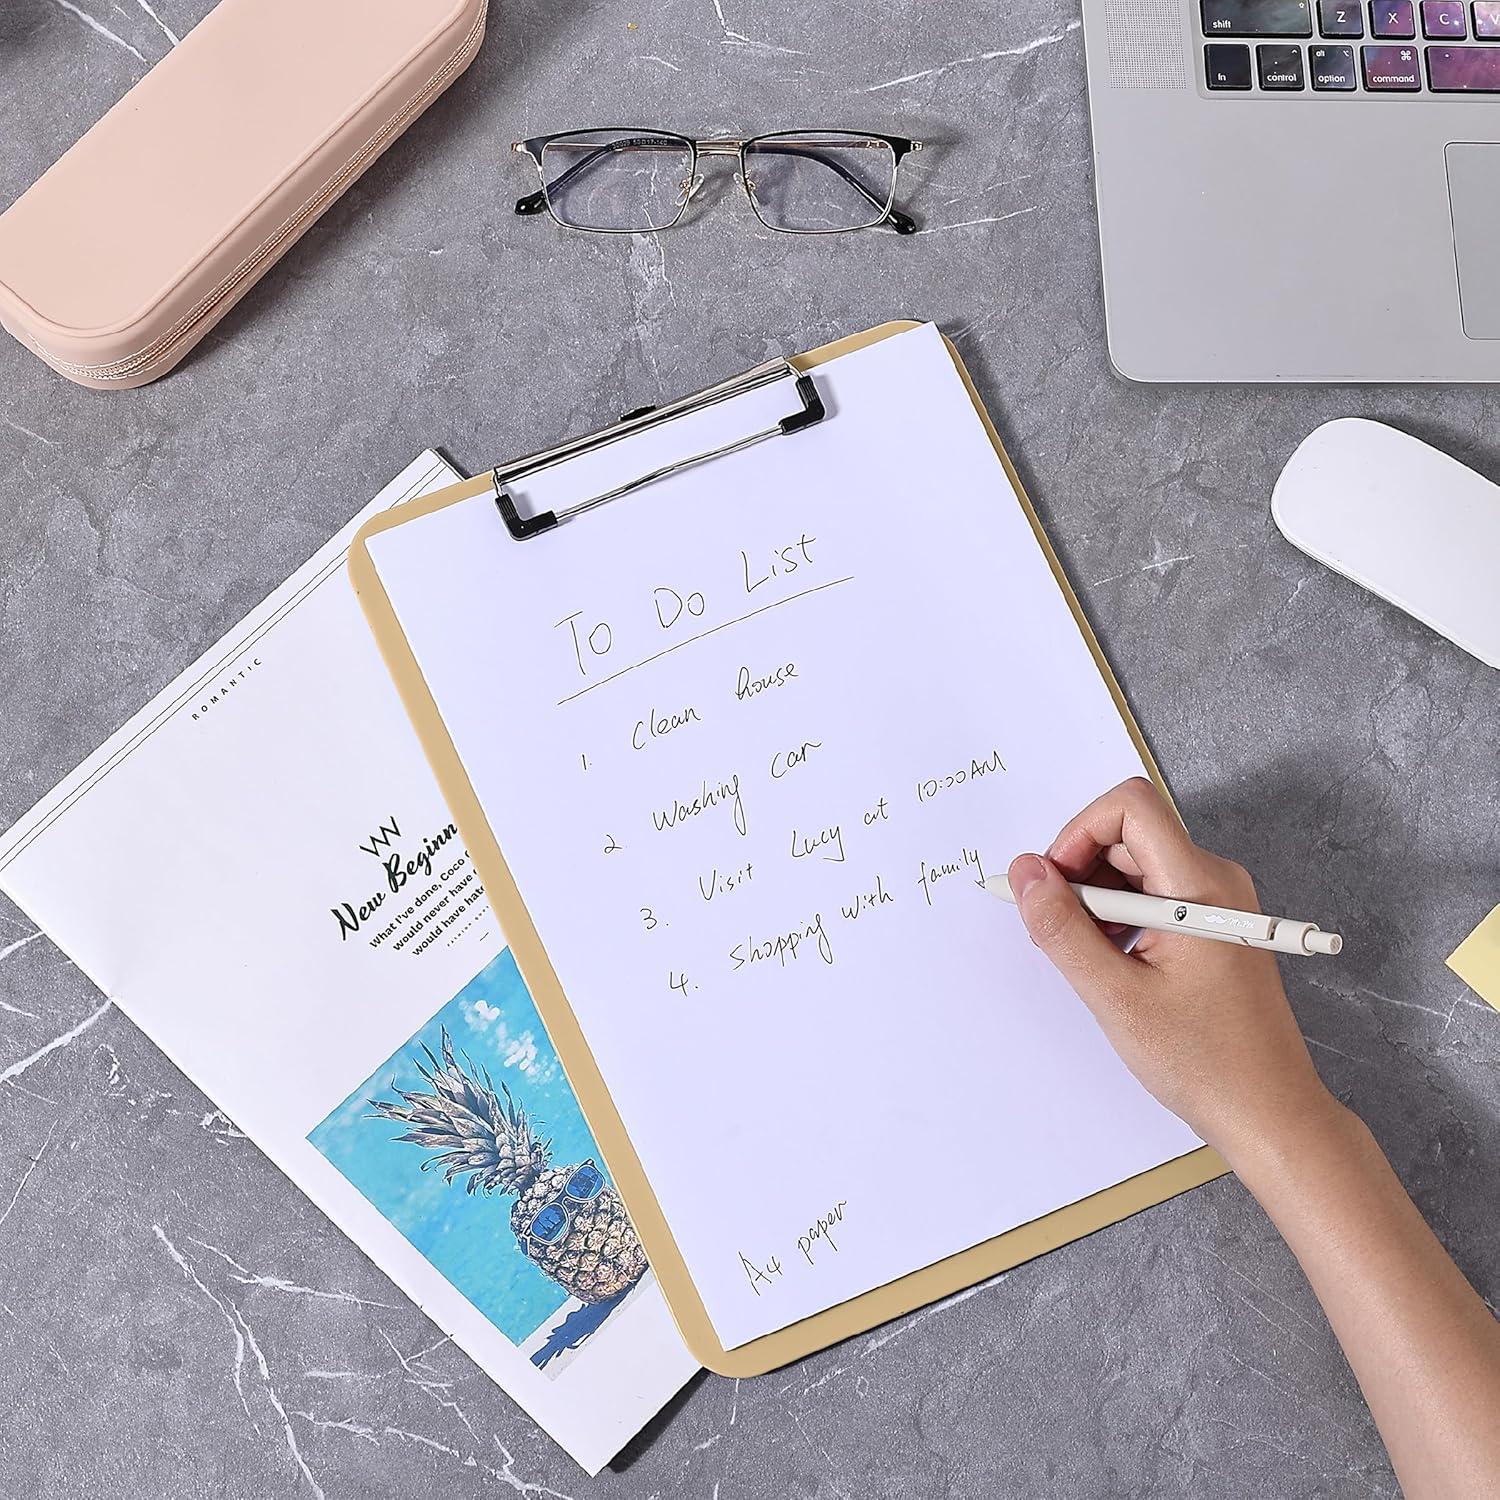 shift
Z
X
C
V
fn
control
alt
option
⌘
command
To Do List
1. Clean house
2 Washing Car
3. Visit Lucy at 10:00AM
4. Shopping with family
A4 paper
ROMANTIC
New Beginn
What I've done, Coco
would never have
would have hate
Mr.Pen